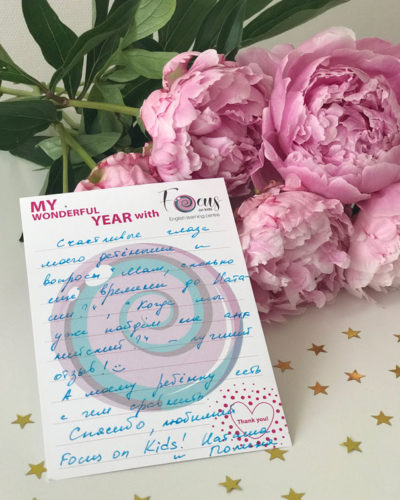 MY
WONDERFUL
YEAR with
Focus
on kids
English learning centre
Счастливые глаза
моего ребёнка и
вопросы: "Мам, сколько
ещё времени до Ната-
ши?", "Когда мы
уже пойдём на анг-
лийский?" - лучший
отзыв!
А моему ребёнку есть
с чем сравнить.
Спасибо, любимый
Focus on Kids! Наташа
и Полина
Thank you!